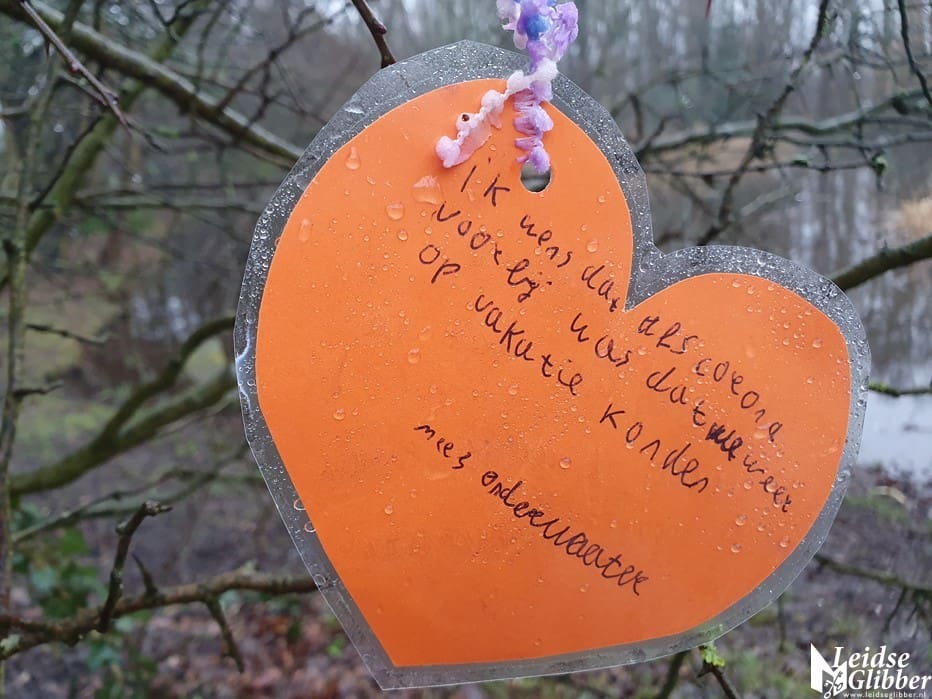 ik wens dat als corona
voorbij was dat we weer
op vakatie konden
mees onderwaater
Leidse
Glibber
www.leidseglibber.nl